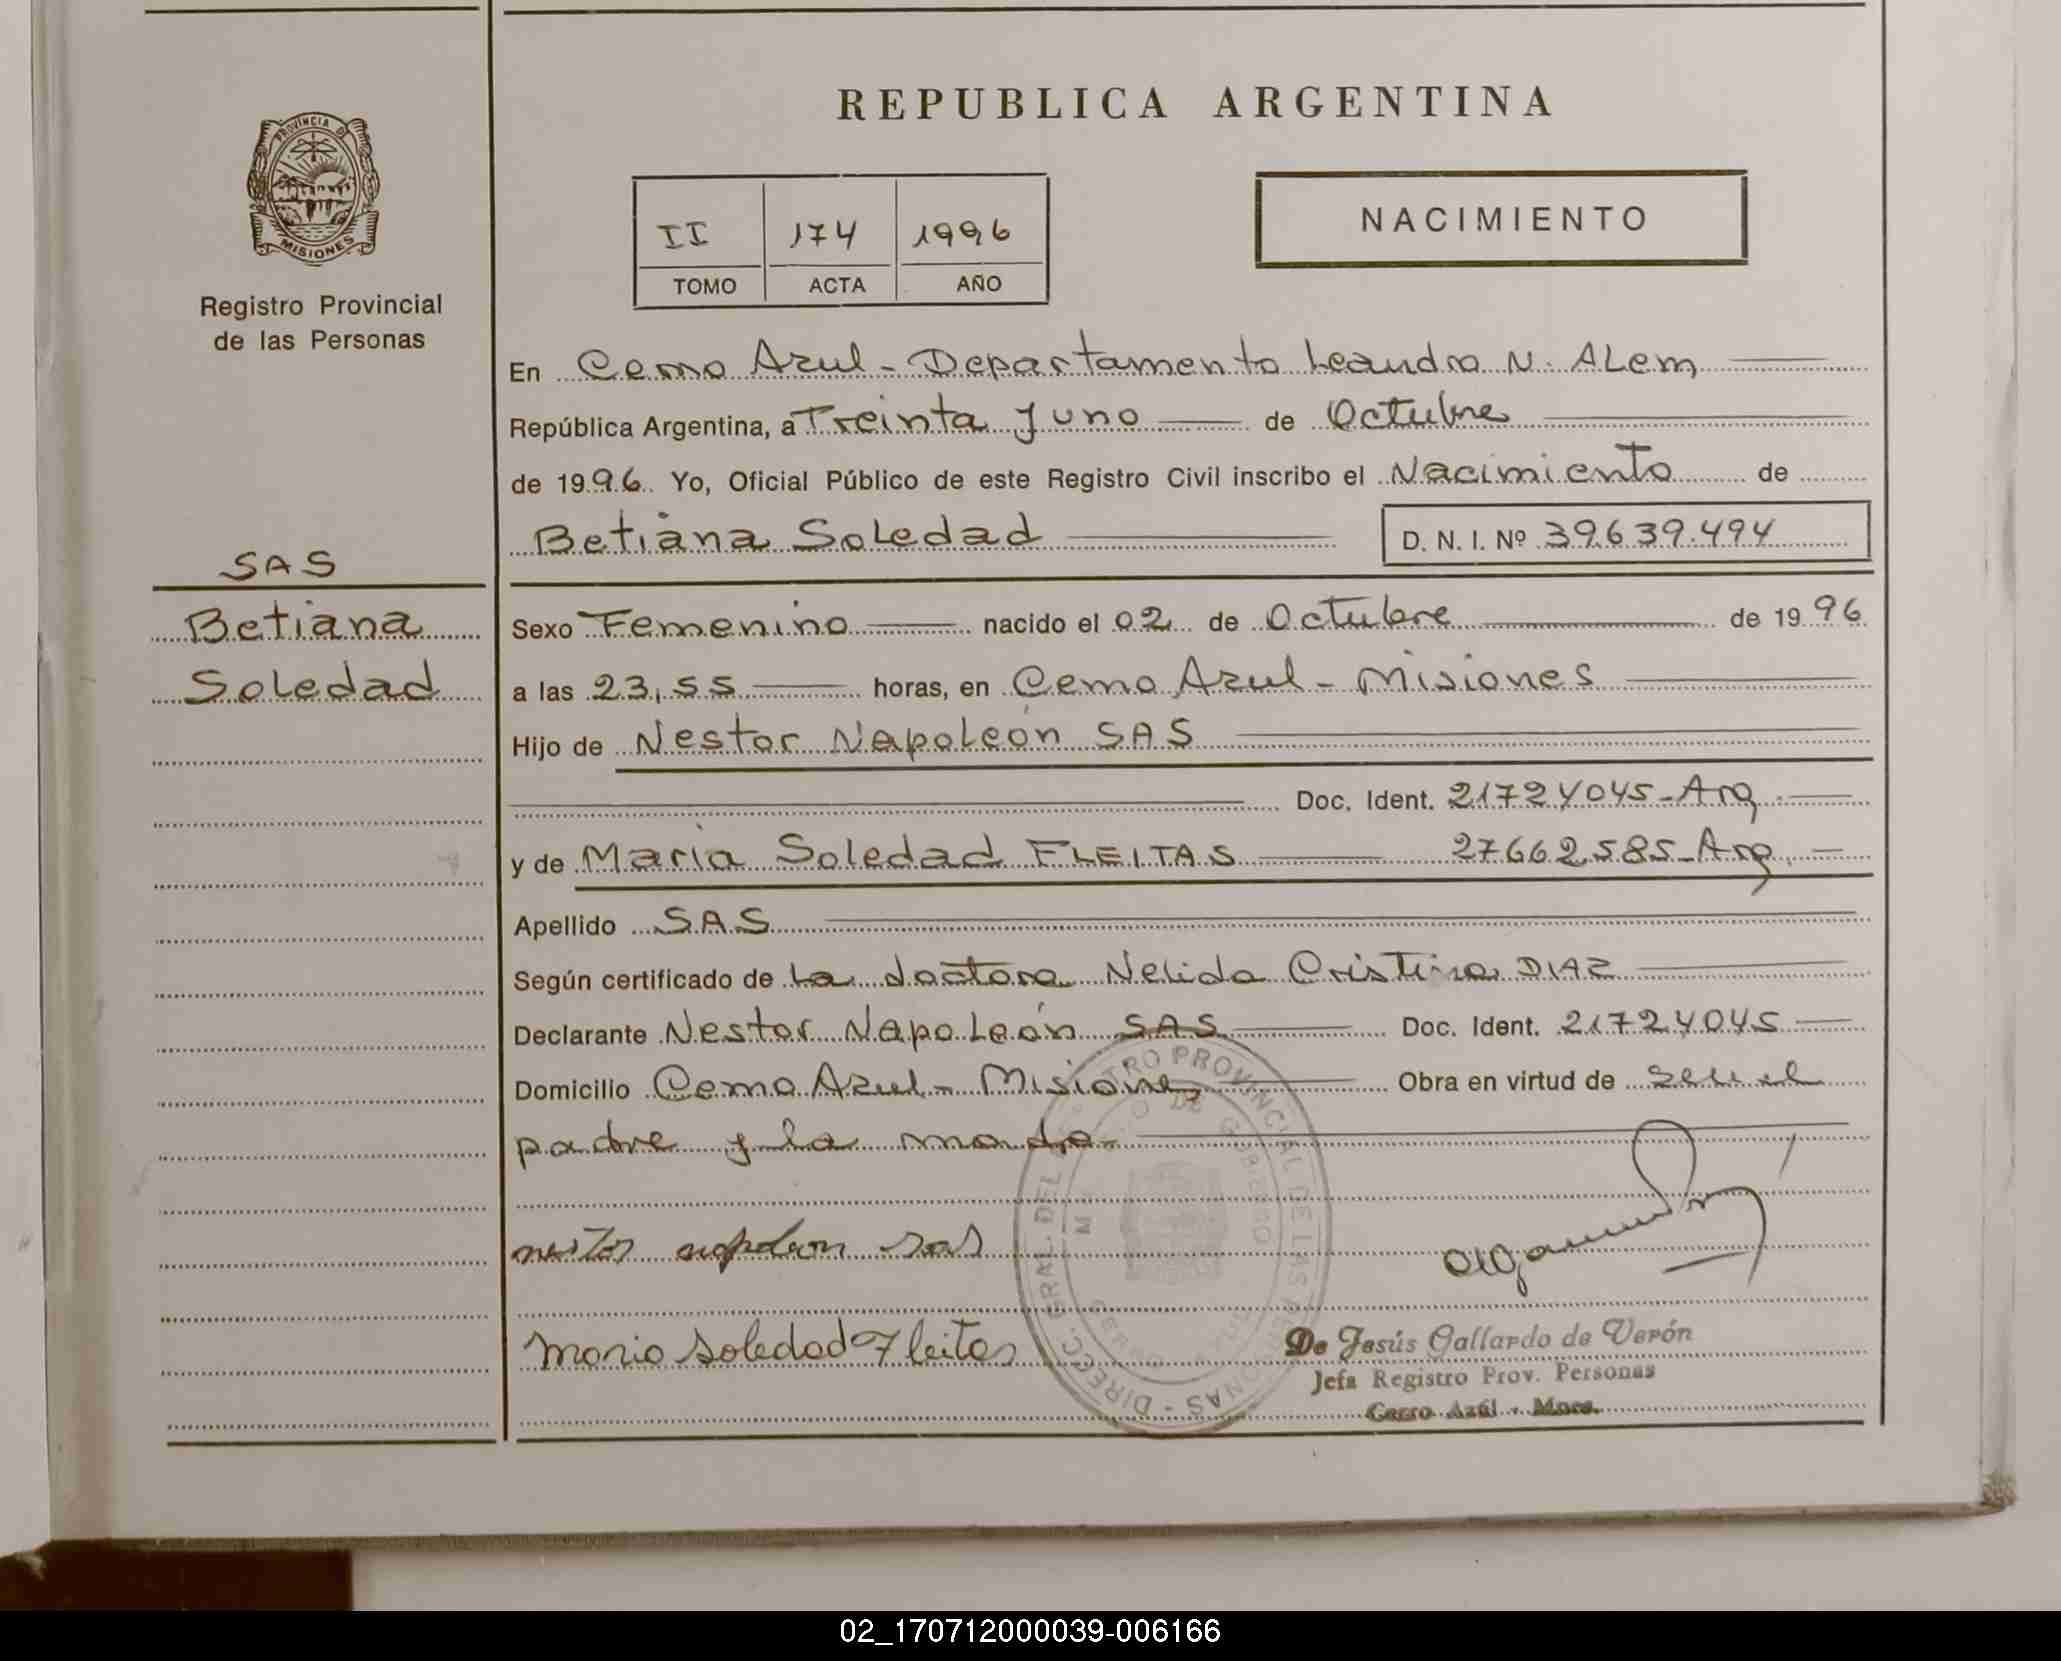 REPUBLICA ARGENTINA
PROVINCIA DE
MISIONES
Registro Provincial
de las Personas
II 174 1996
TOMO ACTA AÑO
NACIMIENTO
En Cerro Azul - Departamento Leandro N. ALem
República Argentina, a Treinta y uno de Octubre
de 1996. Yo, Oficial Público de este Registro Civil inscribo el Nacimiento de
Betiana Soledad D. N. I. Nº 39.639.494
SAS
Betiana
Soledad
Sexo Femenino nacido el 02 de Octubre de 1996
a las 23,55 horas, en Cerro Azul - Misiones
Hijo de Nestor Napoleón SAS
Doc. Ident. 21724045-Arg
y de Maria Soledad FLEITAS 27662585-Arg
Apellido SAS
Según certificado de La doctora Nelida Cristina DIAZ
Declarante Nestor Napoleón SAS Doc. Ident. 21724045
Domicilio Cerro Azul - Misiones Obra en virtud de ser el
padre y la madre
nestor napoleon sas
maria soledad Fleitas
DIRECC. GRAL. DEL REGISTRO PROVINCIAL DE LAS PERSONAS
De Jesús Gallardo de Verón
Jefa Registro Prov. Personas
Cerro Azúl - Mnes.
02_170712000039-006166